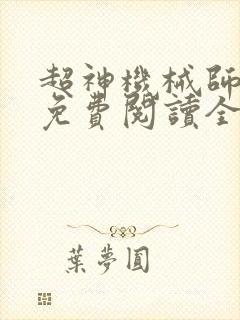 超神機械師
免費閱讀全
葉夢圓